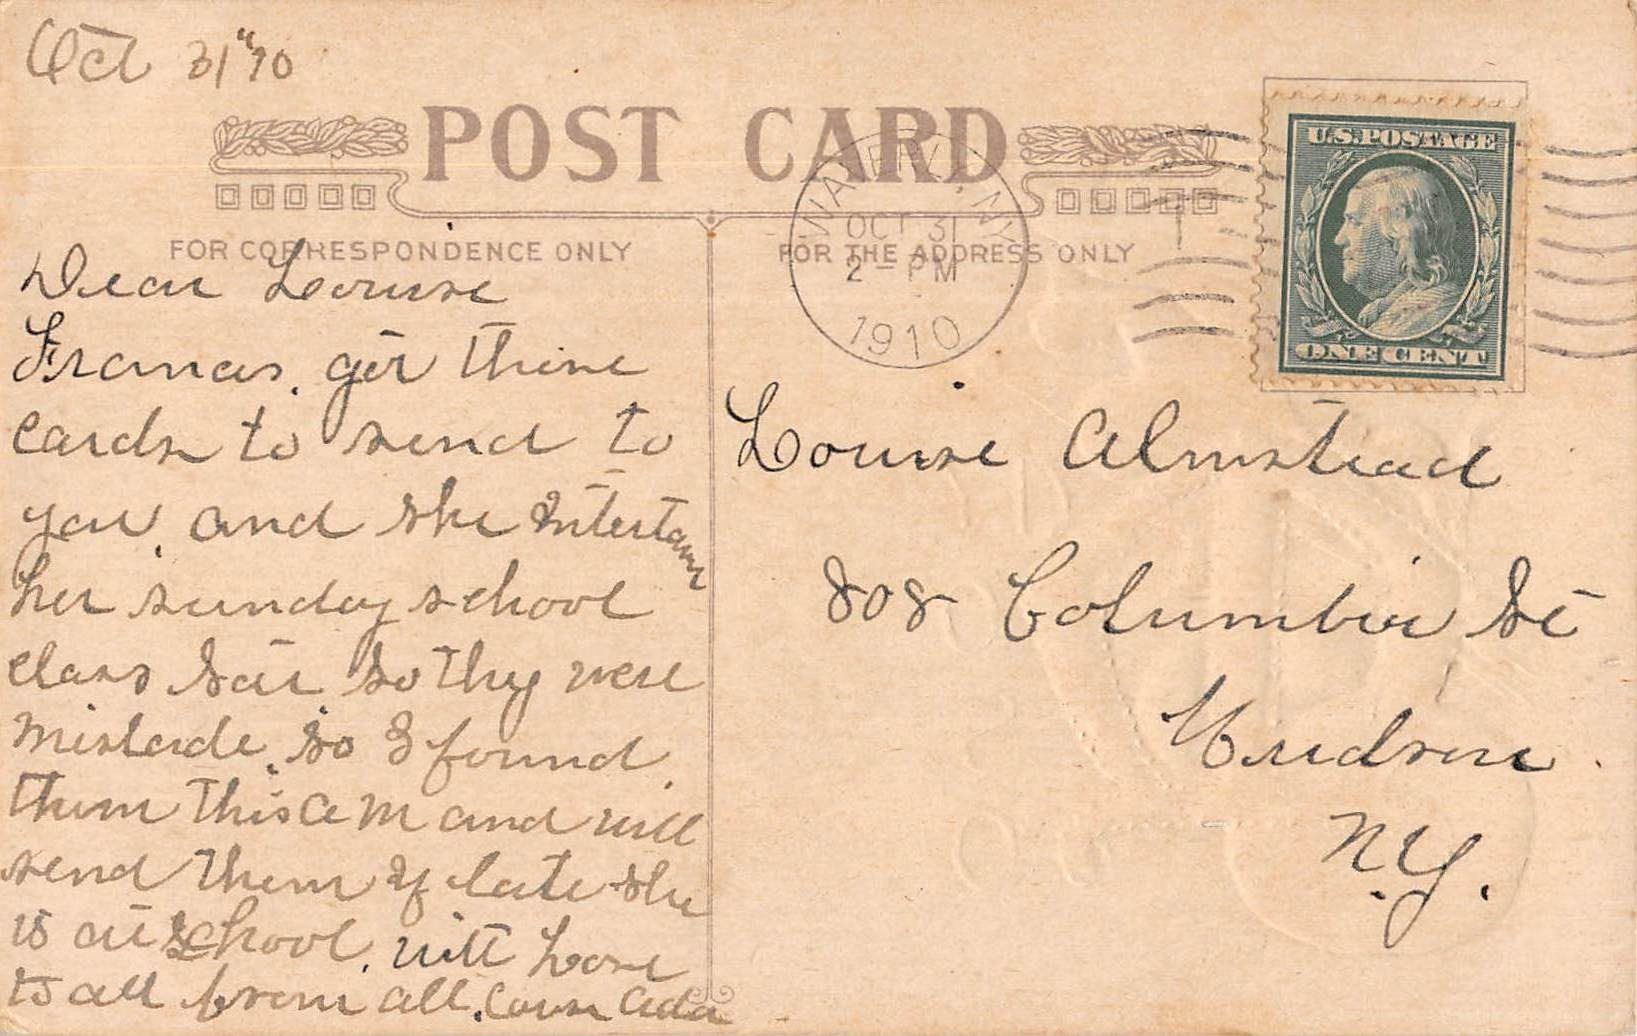 Oct 31" 10
POST CARD
FOR CORRESPONDENCE ONLY
FOR THE ADDRESS ONLY
WAVERLY, N.Y.
OCT 31
2 - PM
1910
U.S. POSTAGE
ONE CENT
Dear Louise
Frances. got these
cards to send to
you. and she entertane
her sunday school
class Sat so they were
mislade. so I found
them this A M and will
send them if late she
is at school. with Love
to all from all. Cousn Ada
Louise Almstead
808 Columbia St
Hudson.
N.Y.